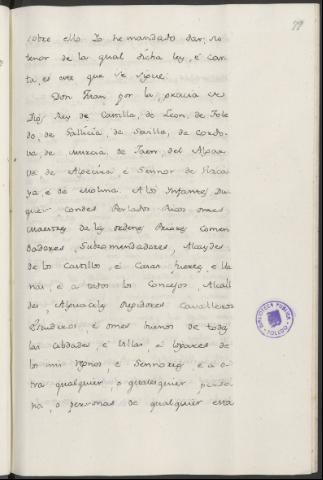 99
sobre ello Io he mandado dar, su
tenor de la qual dicha ley, é car-
ta, es este que se sigue.
Don Juan por la gracia de
Dios Rey de Castilla, de Leon, de Tole-
do, de Gallicia, de Sevilla, de Cordo-
va de Murcia, de Jaen, del Algar-
ve de Algecira, é Sennor de Vizca-
ya, é de Molina. A los Infantes Du-
ques Condes Perlados Ricos omes
Maestres de las ordenes Priores Comen
dadores, Subcomendadores, Alcaydes
de los Castillos, é Casas fuertes, é lla-
nas, é a todos los Concejos, Alcall
des, Alguaciles Regidores Cavalleros
Escuderos, é omes buenos de todas
las cibdades é Villas, é logares de
los mis regnos, é Sennorios, é a o-
tra qualquier, o qualesquier perso-
na, o personas de qualquier esta
BIBLIOTECA PUBLICA
TOLEDO